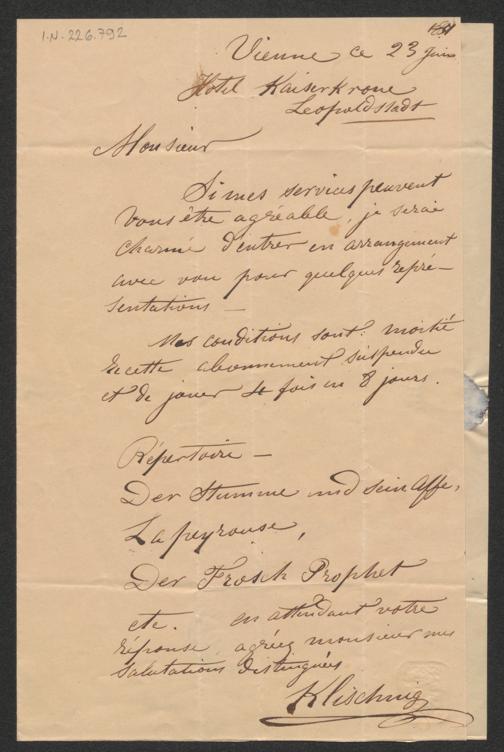 I.N. 226.792
Vienne ce 23 Juin
Hotel Kaiserkrone
Leopoldstadt
Monsieur
Si mes services peuvent
vous être agréable, je serai
charmé d'entrer en arrangement
avec vou pour quelques repré-
sentations —
Mes conditions sont: moitié
recette abonnement suspendu
et de jouer 4 fois en 8 jours.
Répertoire —
Der Stumme und sein Affe,
Lapeyrouse,
Der Frosch Prophet
etc. en attendant votre
réponse agréez monsieur mes
salutations distinguées
Klischnig